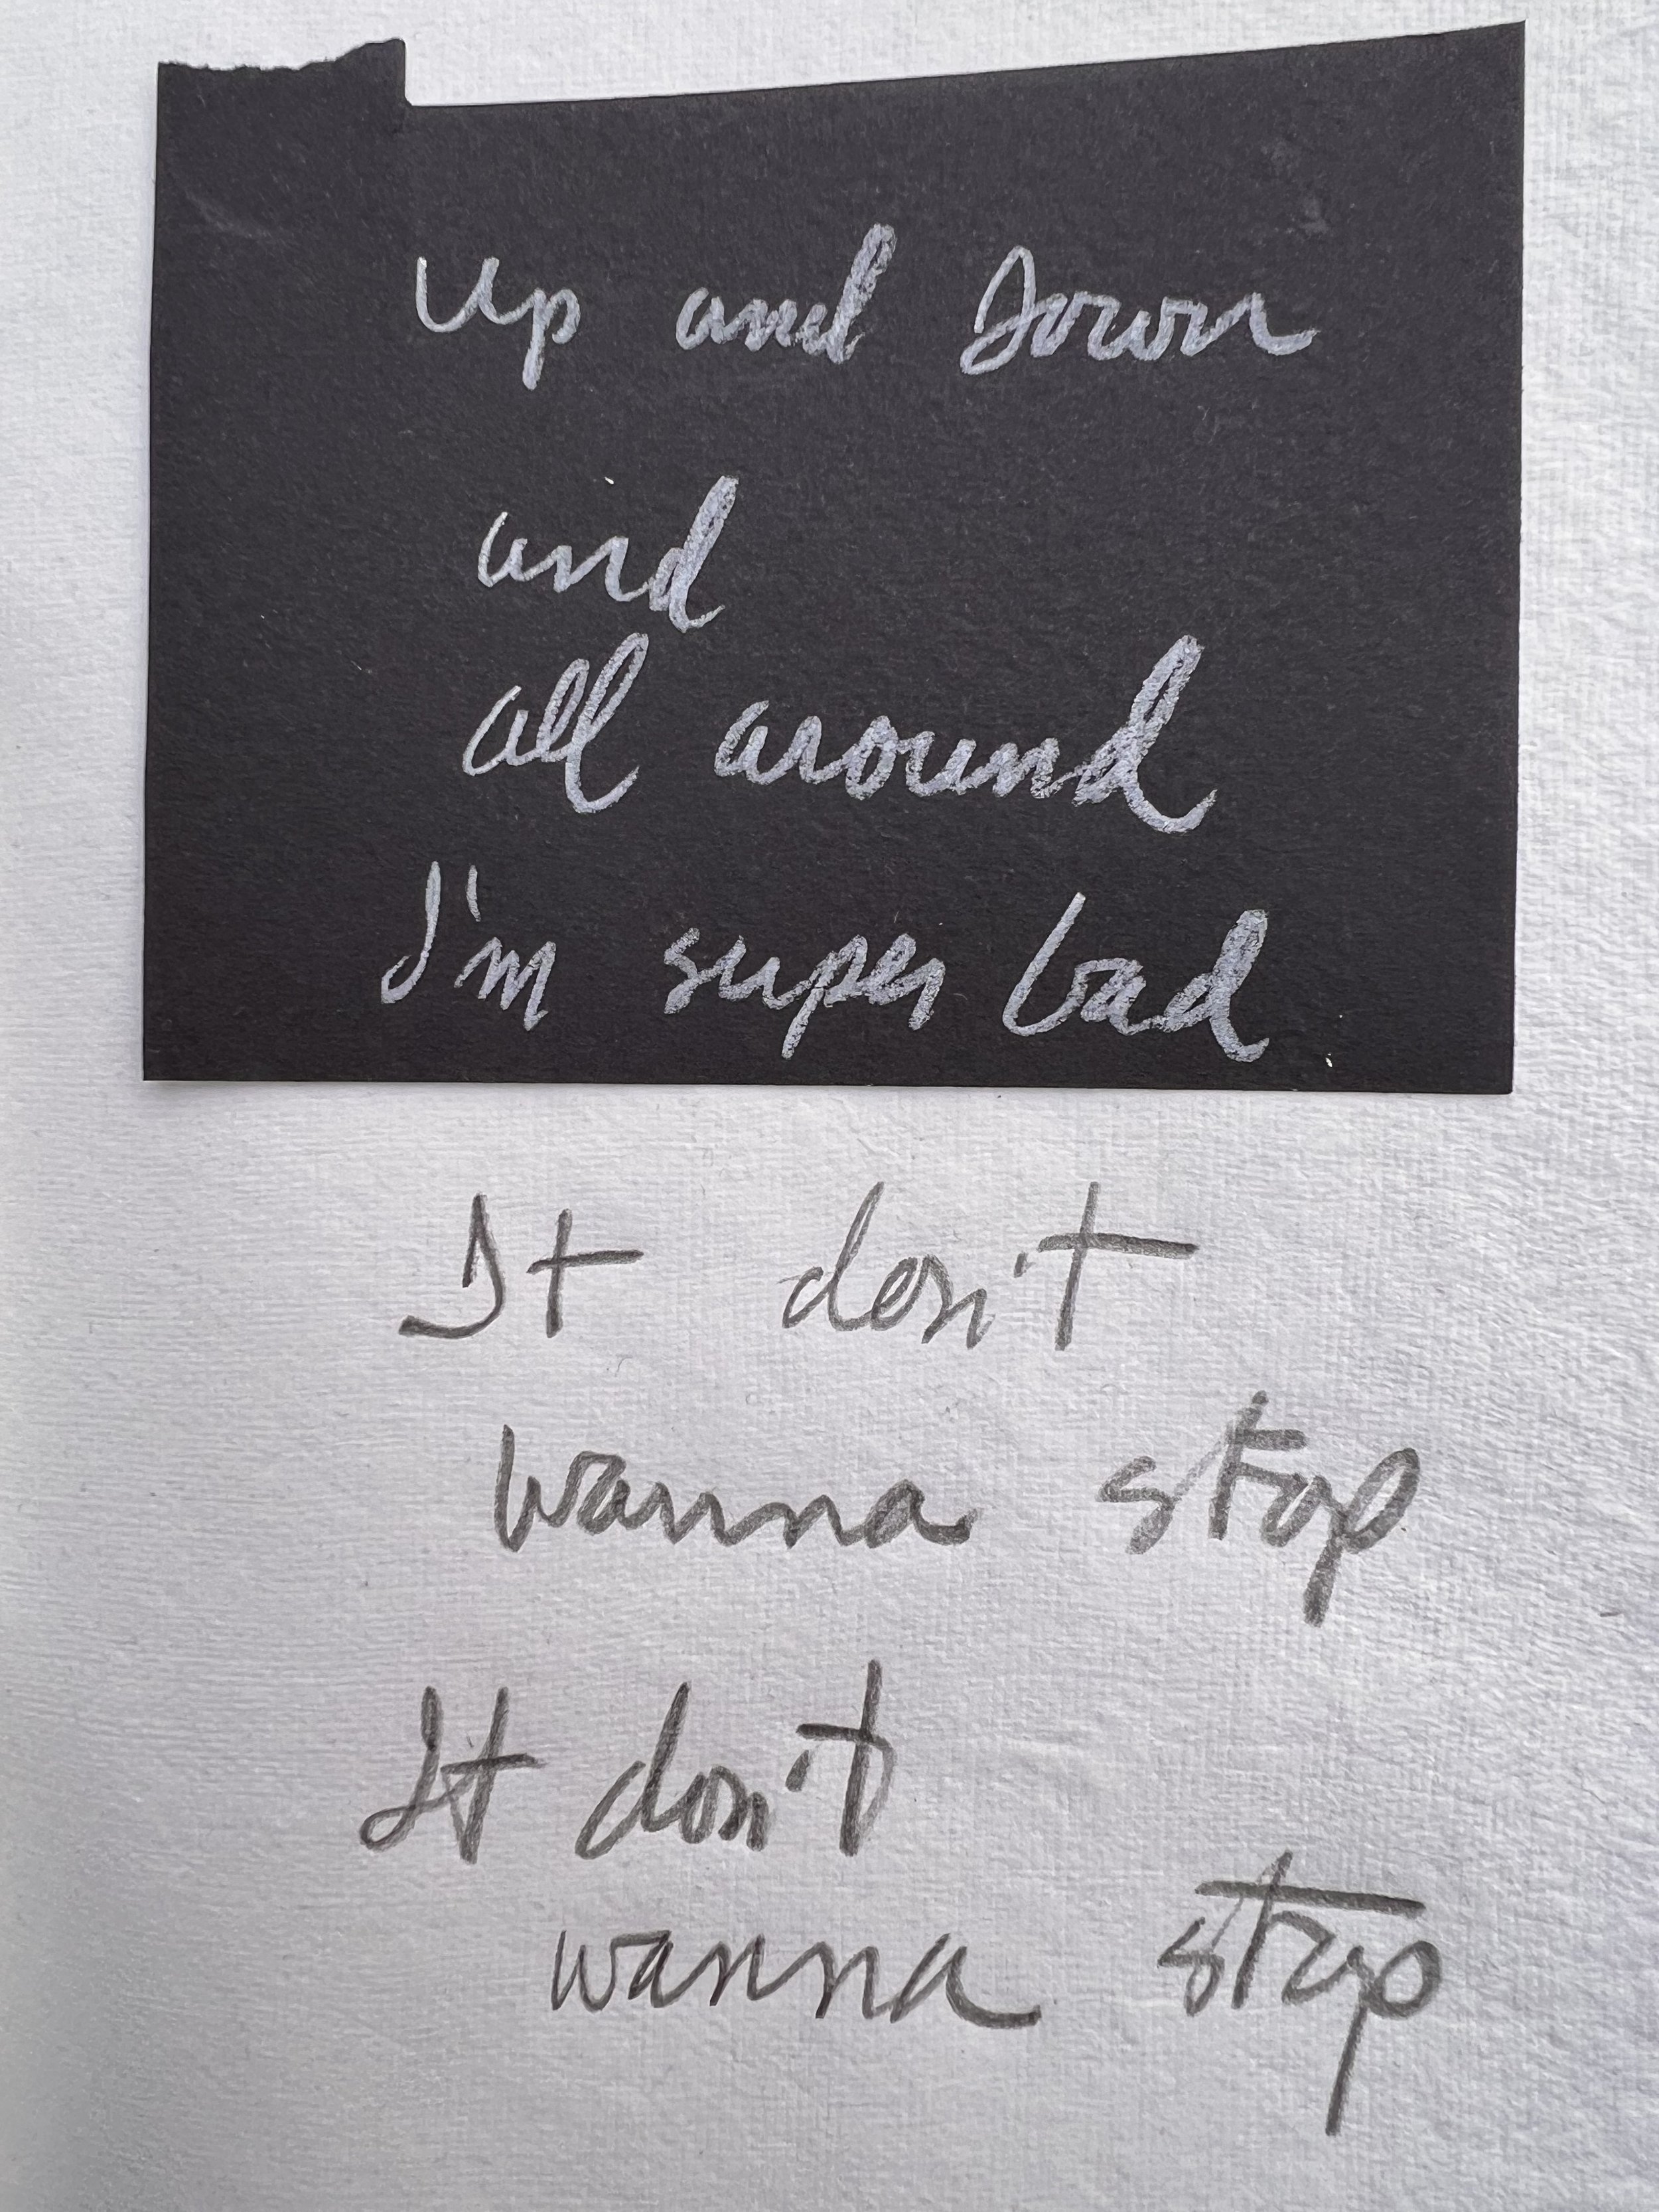 Up and Down
and
all around
I'm super bad
It don't
wanna stop
It don't
wanna stop